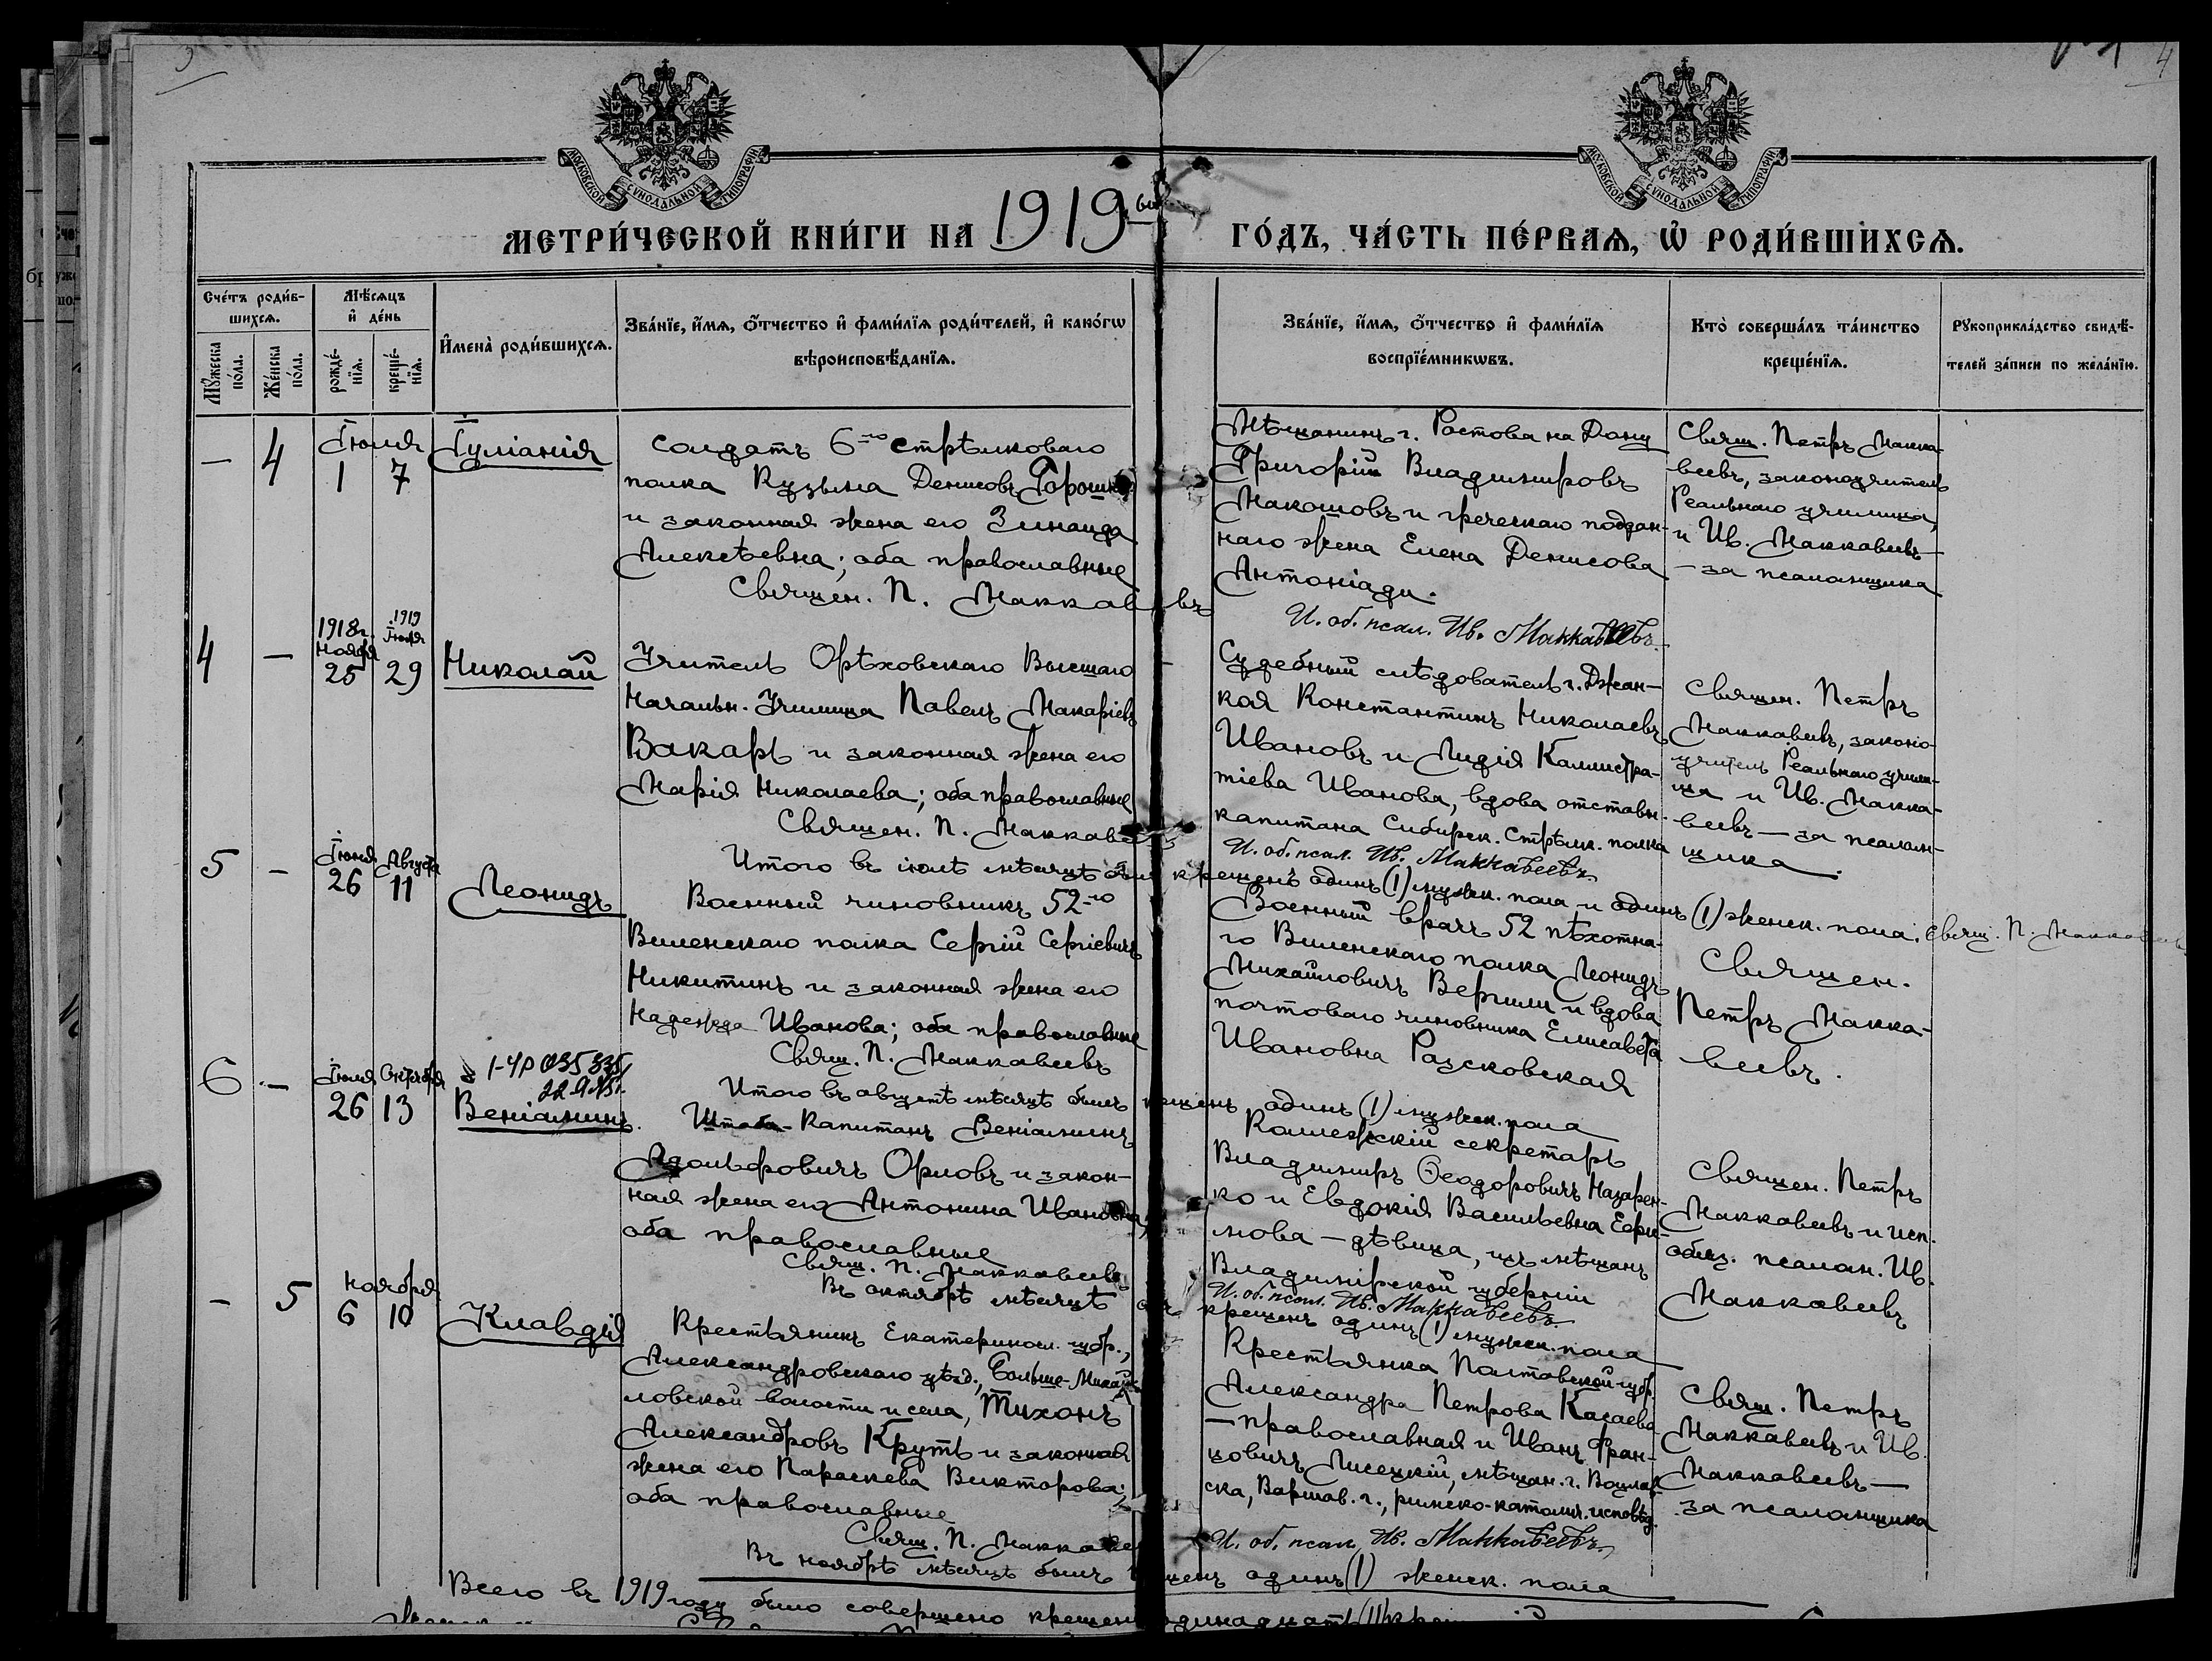 3
4
МОСКОВСКОЙ СѴНОДАЛЬНОЙ ТИПОГРАФІИ
МОСКОВСКОЙ СѴНОДАЛЬНОЙ ТИПОГРАФІИ
МЕТРИ́ЧЕСКОЙ КНИ́ГИ НА 1919-ый ГО́ДЪ, ЧА́СТЬ ПЕ́РВАѦ, Ѡ҆ РОДИ́ВШИХСѦ.
Сче́тъ роди́в-
шихсѧ.
Мꙋ́жеска по́ла.
Же́нска по́ла.
Мѣ́сѧцъ
и҆ де́нь
рожде́-
нїѧ.
креще́-
нїѧ.
И҆мена̀ роди́вшихсѧ.
Зва́нїе, и҆́мѧ, ѻ҆́тчество и҆ фамилїѧ роди́телей, и҆ како́гѡ
вѣроисповѣ́данїѧ.
Зва́нїе, и҆́мѧ, ѻ҆́тчество и҆ фами́лїѧ
воспрїе́мникѡвъ.
Кто̀ соверша́лъ та́инство
креще́нїѧ.
Рꙋкоприкла́дство свидѣ́-
телей за́писи по жела́нїю.
— 4
Іюля
1 7
Іуліанія
Солдатъ 6-го стрѣлковаго
полка Кузьма Денисовъ
и законная жена его Зинаида
Алексѣевна; оба православные
Священ. П. Маккавеевъ
Мѣщанинъ г. Ростова на Дону
Григорій Владиміровъ
Макошовъ и греческаго поддан-
наго жена Елена Денисова
Антоніади.
И. об. псал. Ив. Маккавеевъ.
Свящ. Петръ Макка-
веевъ, законоучитель
Реальнаго училища,
и Ив. Маккавеевъ —
— за псаломщика
4 —
1918 г.
Ноября
25
1919
Іюля
29
Николай
Учитель Орѣховскаго Высшаго
Начальн. Училища Павелъ Макаріевъ
Вакарь и законная жена его
Марія Николаева; оба православные
Священ. П. Маккавеевъ
Судебный слѣдователь г. Джан-
коя Константинъ Николаевъ
Ивановъ и Лидія Каллистра-
тіева Иванова, вдова отставн.
капитана Сибирск. Стрѣлк. полка
И. об. псал. Ив. Маккавеевъ.
Священ. Петръ
Маккавеевъ, законо-
учитель Реальнаго учили-
ща и Ив. Макка-
веевъ — за псалом-
щика.
Итого въ іюлѣ мѣсяцѣ крещенъ одинъ (1) мужск. пола и одинъ (1) женск. пола. Свящ. П. Маккавеевъ
5 —
Іюня
26
Августа
11
Леонидъ
Военный чиновникъ 52-го
Виленскаго полка Сергій Сергіевичъ
Никитинъ и законная жена его
Надежда Иванова; оба православные
Свящ. П. Маккавеевъ
Военный врачъ 52 пѣхотна-
го Виленскаго полка Леонидъ
Михайловичъ Вергили и вдова
почтоваго чиновника Елисавета
Ивановна Разсковская
Священ.
Петръ Макка-
веевъ.
Итого въ августѣ мѣсяцѣ былъ крещенъ одинъ (1) мужск. пола
6 —
Іюля
26
Октября
13
Веніаминъ.
Штабъ-Капитанъ Веніаминъ
Адольфовичъ Орловъ и закон-
ная жена его Антонина Ивановна,
оба православные
Свящ. П. Маккавеевъ
Коллежскій секретарь
Владиміръ Ѳеодоровичъ Назарен-
ко и Евдокія Васильевна Ефи-
мова — дѣвица, изъ мѣщанъ
Владимірской губерніи
И. об. псал. Ив. Маккавеевъ.
Священ. Петръ
Маккавеевъ и исп.
обяз. псалом. Ив.
Маккавеевъ
Въ октябрѣ мѣсяцѣ крещенъ одинъ (1) мужск. пола
— 5
Ноября
6 10
Клавдія
Крестьянинъ Екатеринсл. губр.,
Александровскаго уѣзд., Больше-Михай-
ловской волости и села, Тихонъ
Александровъ Круть и законная
жена его Параскева Викторова;
оба православные
Свящ. П. Маккавеевъ
Крестьянка Полтавской губ.
Александра Петрова Касаева
— православная и Иванъ Фран-
цовичъ Лисецкій, мѣщан. г.
ска, Варшав. г., римско-католич. исповѣд.
И. об. псал. Ив. Маккавеевъ.
Свящ. Петръ
Маккавеевъ и Ив.
Маккавеевъ —
за псаломщика
Въ ноябрѣ мѣсяцѣ былъ крещенъ одинъ (1) женск. пола
Всего въ 1919 году было совершено крещеній одинадцать (11)